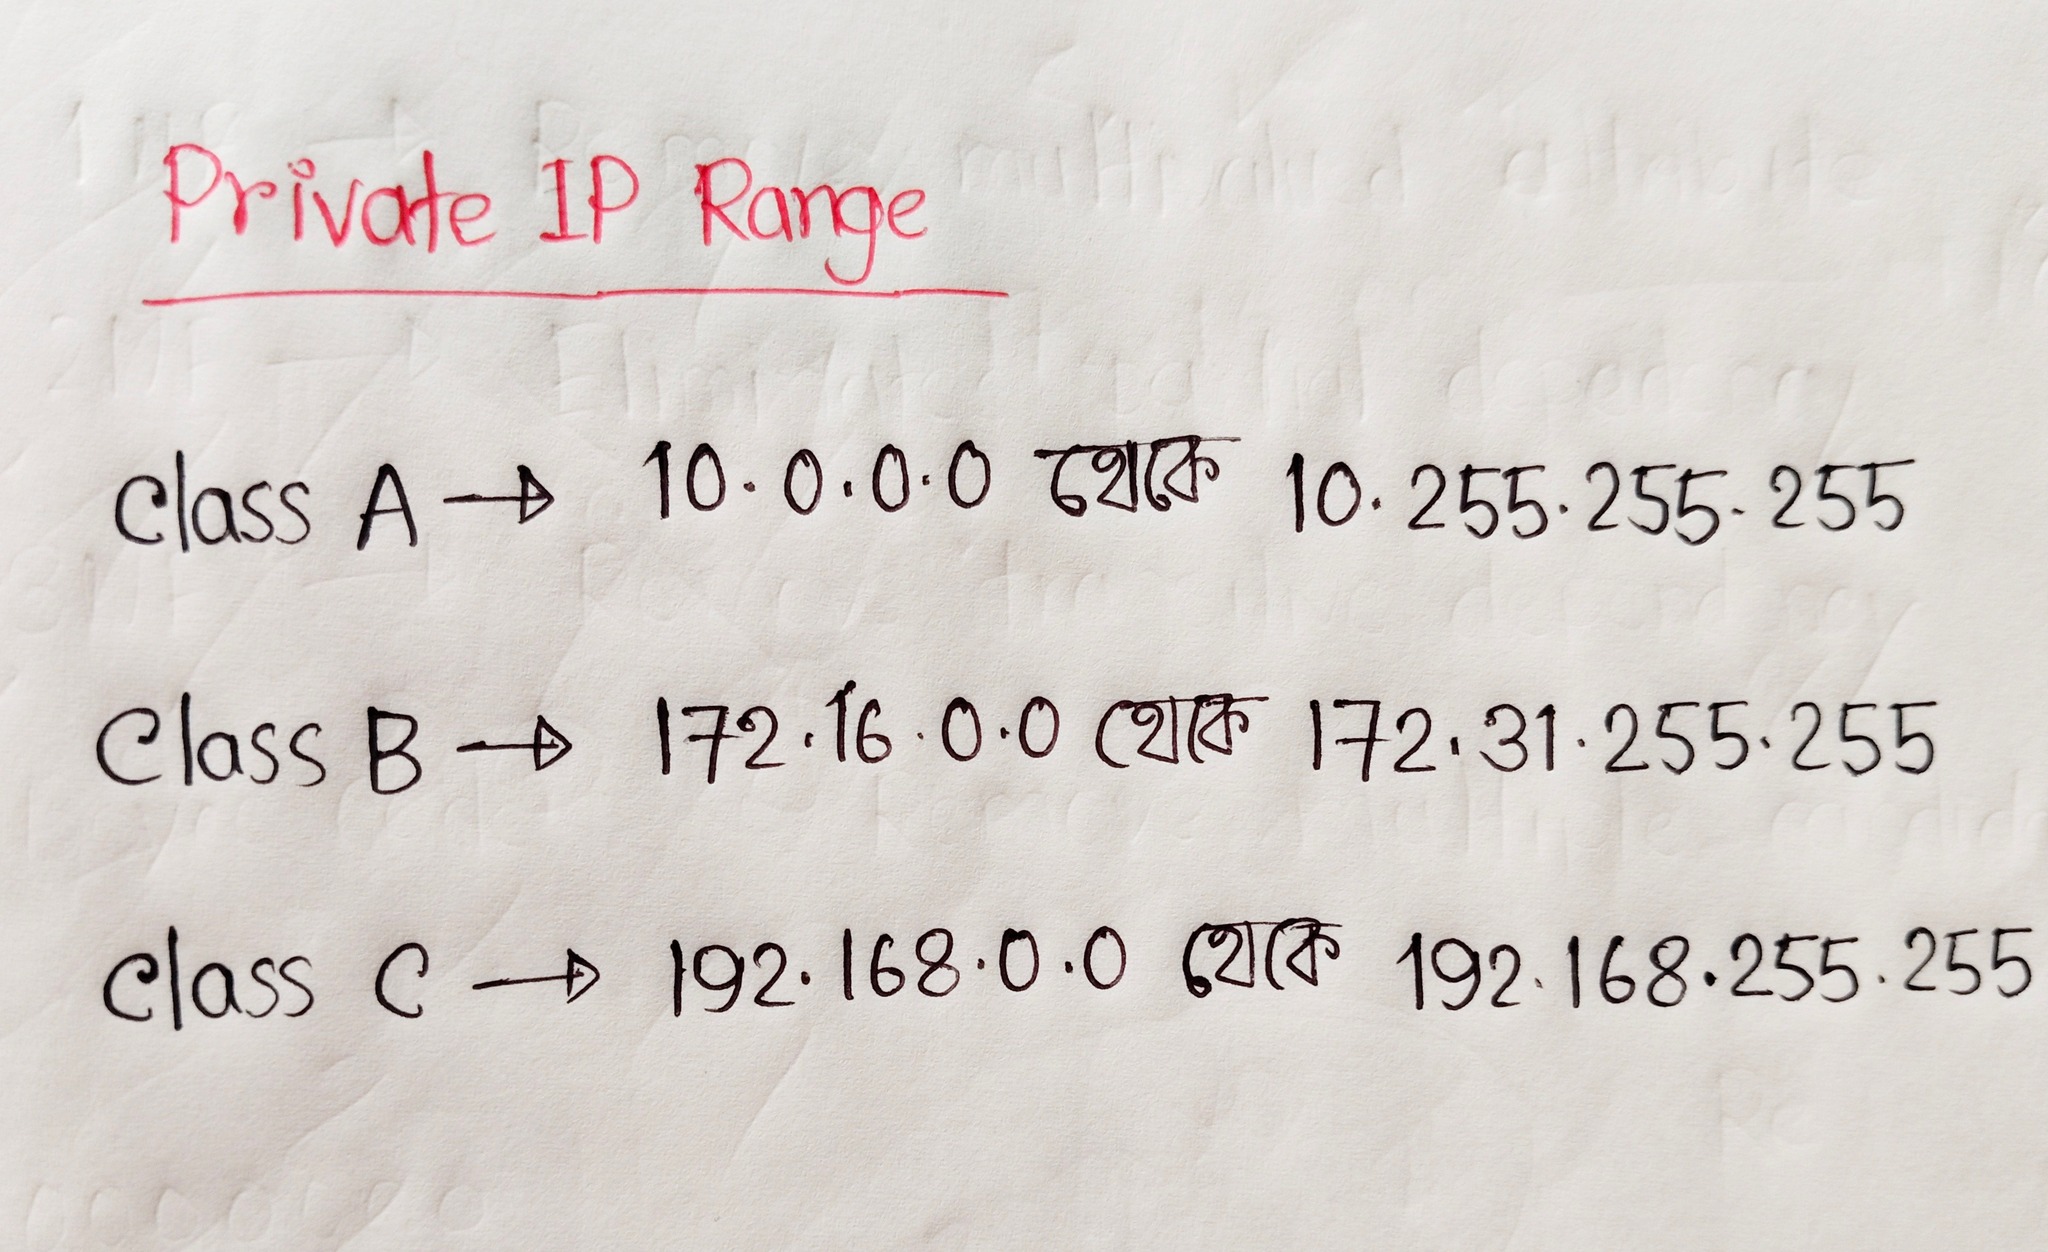 Private IP Range
Class A → 10.0.0.0 থেকে 10.255.255.255
Class B → 172.16.0.0 থেকে 172.31.255.255
Class C → 192.168.0.0 থেকে 192.168.255.255